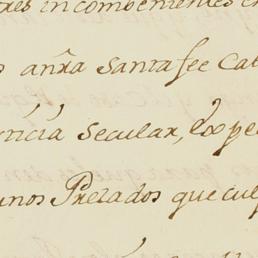 res incombenientes e
anr̃a Santa fee Ca
ticia Secular, Expe
unos Prelados que cu